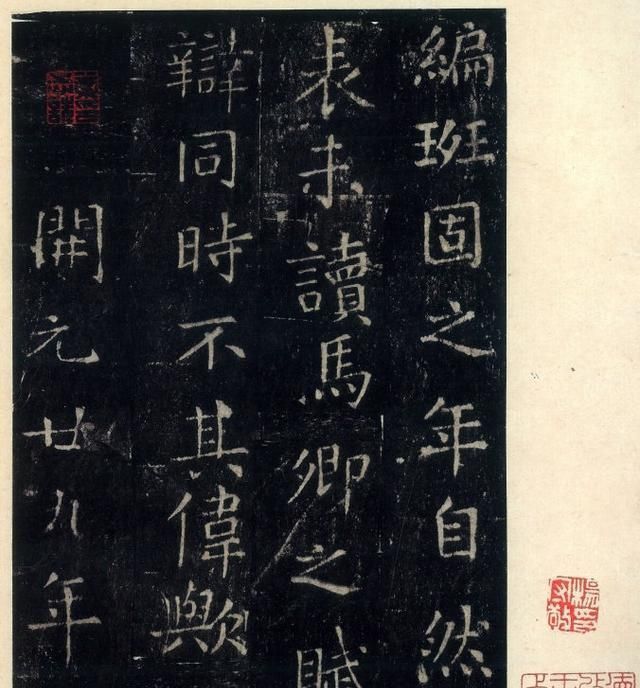 編班固之年自然
表未讀馬卿之賦
辯同時不其偉歟
開元廿九年